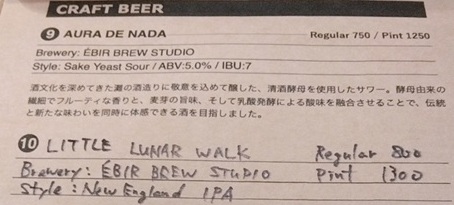 CRAFT BEER
9 AURA DE NADA Regular 750 / Pint 1250
Brewery: ÉBIR BREW STUDIO
Style: Sake Yeast Sour / ABV:5.0% / IBU:7
酒文化を深めてきた灘の酒造りに敬意を込めて醸した、清酒酵母を使用したサワー。酵母由来の
繊細でフルーティな香りと、麦芽の旨味、そして乳酸発酵による酸味を融合させることで、伝統
と新たな味わいを同時に体感できる酒を目指しました。
10 LITTLE LUNAR WALK Regular 800
Brewery: ÉBIR BREW STUDIO Pint 1300
Style: New England IPA